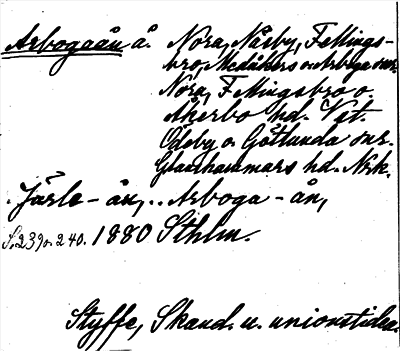 Arbogaån å. Nora, Näsby, Fellings-
bro, Medåkers o. Arboga snr.
Nora, Fellingsbro o.
Åkerbo hd. Vst.
Ödeby o. Götlunda snr.
Glanshammars hd. Nrk.
Järle-ån, .. Arboga-ån,
S. 239 o. 240. 1880 Sthlm.
Styffe, Skand. u. unionstiden.